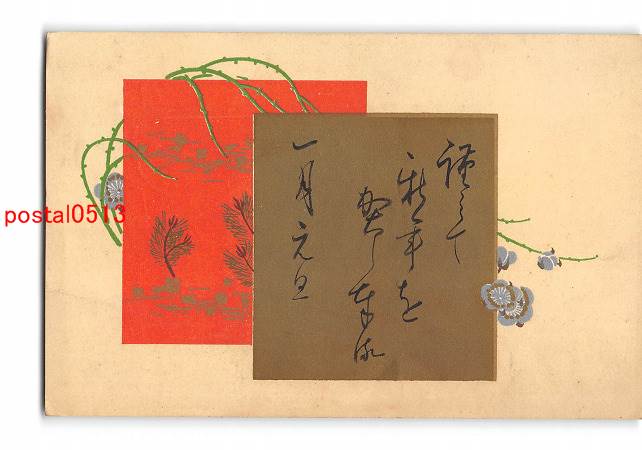 謹みて
新年を
賀し奉候
一月元旦
postal0513